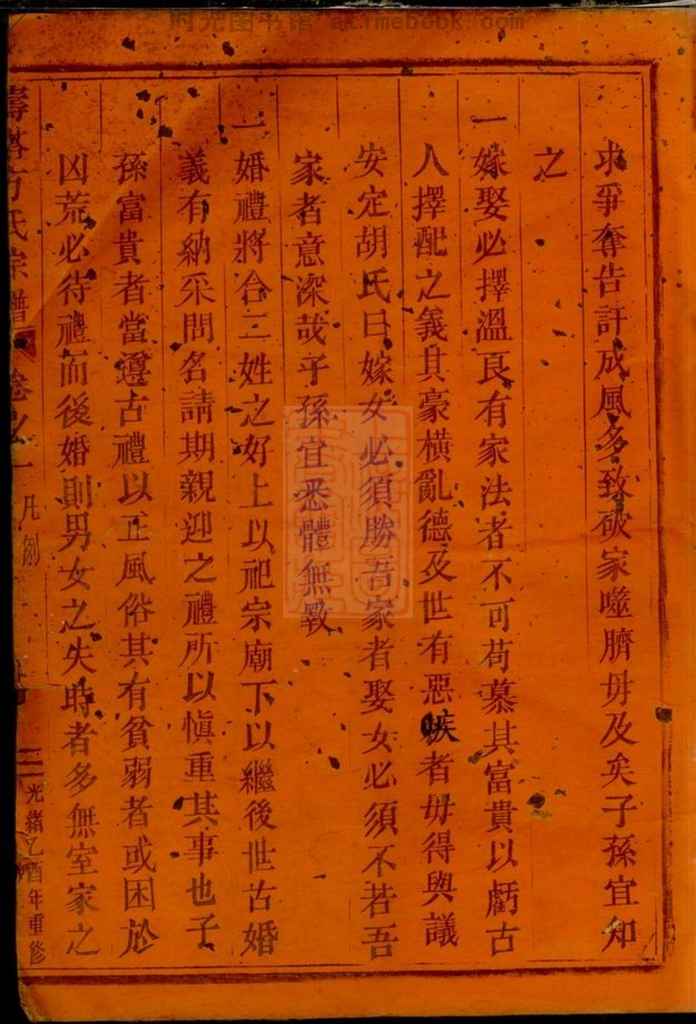 时光图书馆 a.timebook.com
求爭奪告訐成風多致破家噬臍毋及矣子孫宜知
之
一嫁娶必擇溫良有家法者不可苟慕其富貴以虧古
人擇配之義其豪橫亂德及世有惡疾者毋得與議
安定胡氏曰嫁女必須勝吾家者娶女必須不若吾
家者意深哉子孫宜悉體無斁
一婚禮將合二姓之好上以祀宗廟下以繼後世古婚
義有納采問名請期親迎之禮所以愼重其事也子
孫富貴者當遵古禮以正風俗其有貧弱者或困於
凶荒必待禮而後婚則男女之失時者多無室家之
氏宗譜 卷之一 凡例 三 光緒乙酉年重修